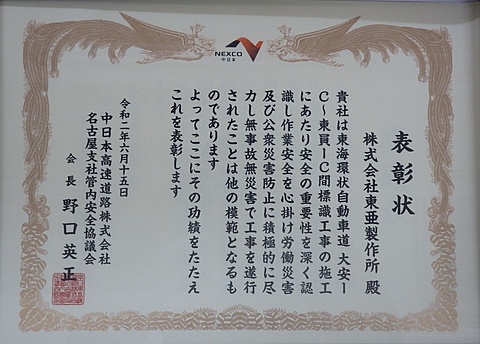 NEXCO
中日本
表彰状
株式会社東亜製作所 殿
貴社は東海環状自動車道 大安I
C～東員IC間標識工事の施工
にあたり安全の重要性を深く認
識し作業安全を心掛け労働災害
及び公衆災害防止に積極的に尽
力し無事故無災害で工事を遂行
されたことは他の模範となるも
のであります
よってここにその功績をたたえ
これを表彰します
令和二年六月十五日
中日本高速道路株式会社
名古屋支社管内安全協議会
会長 野口英正